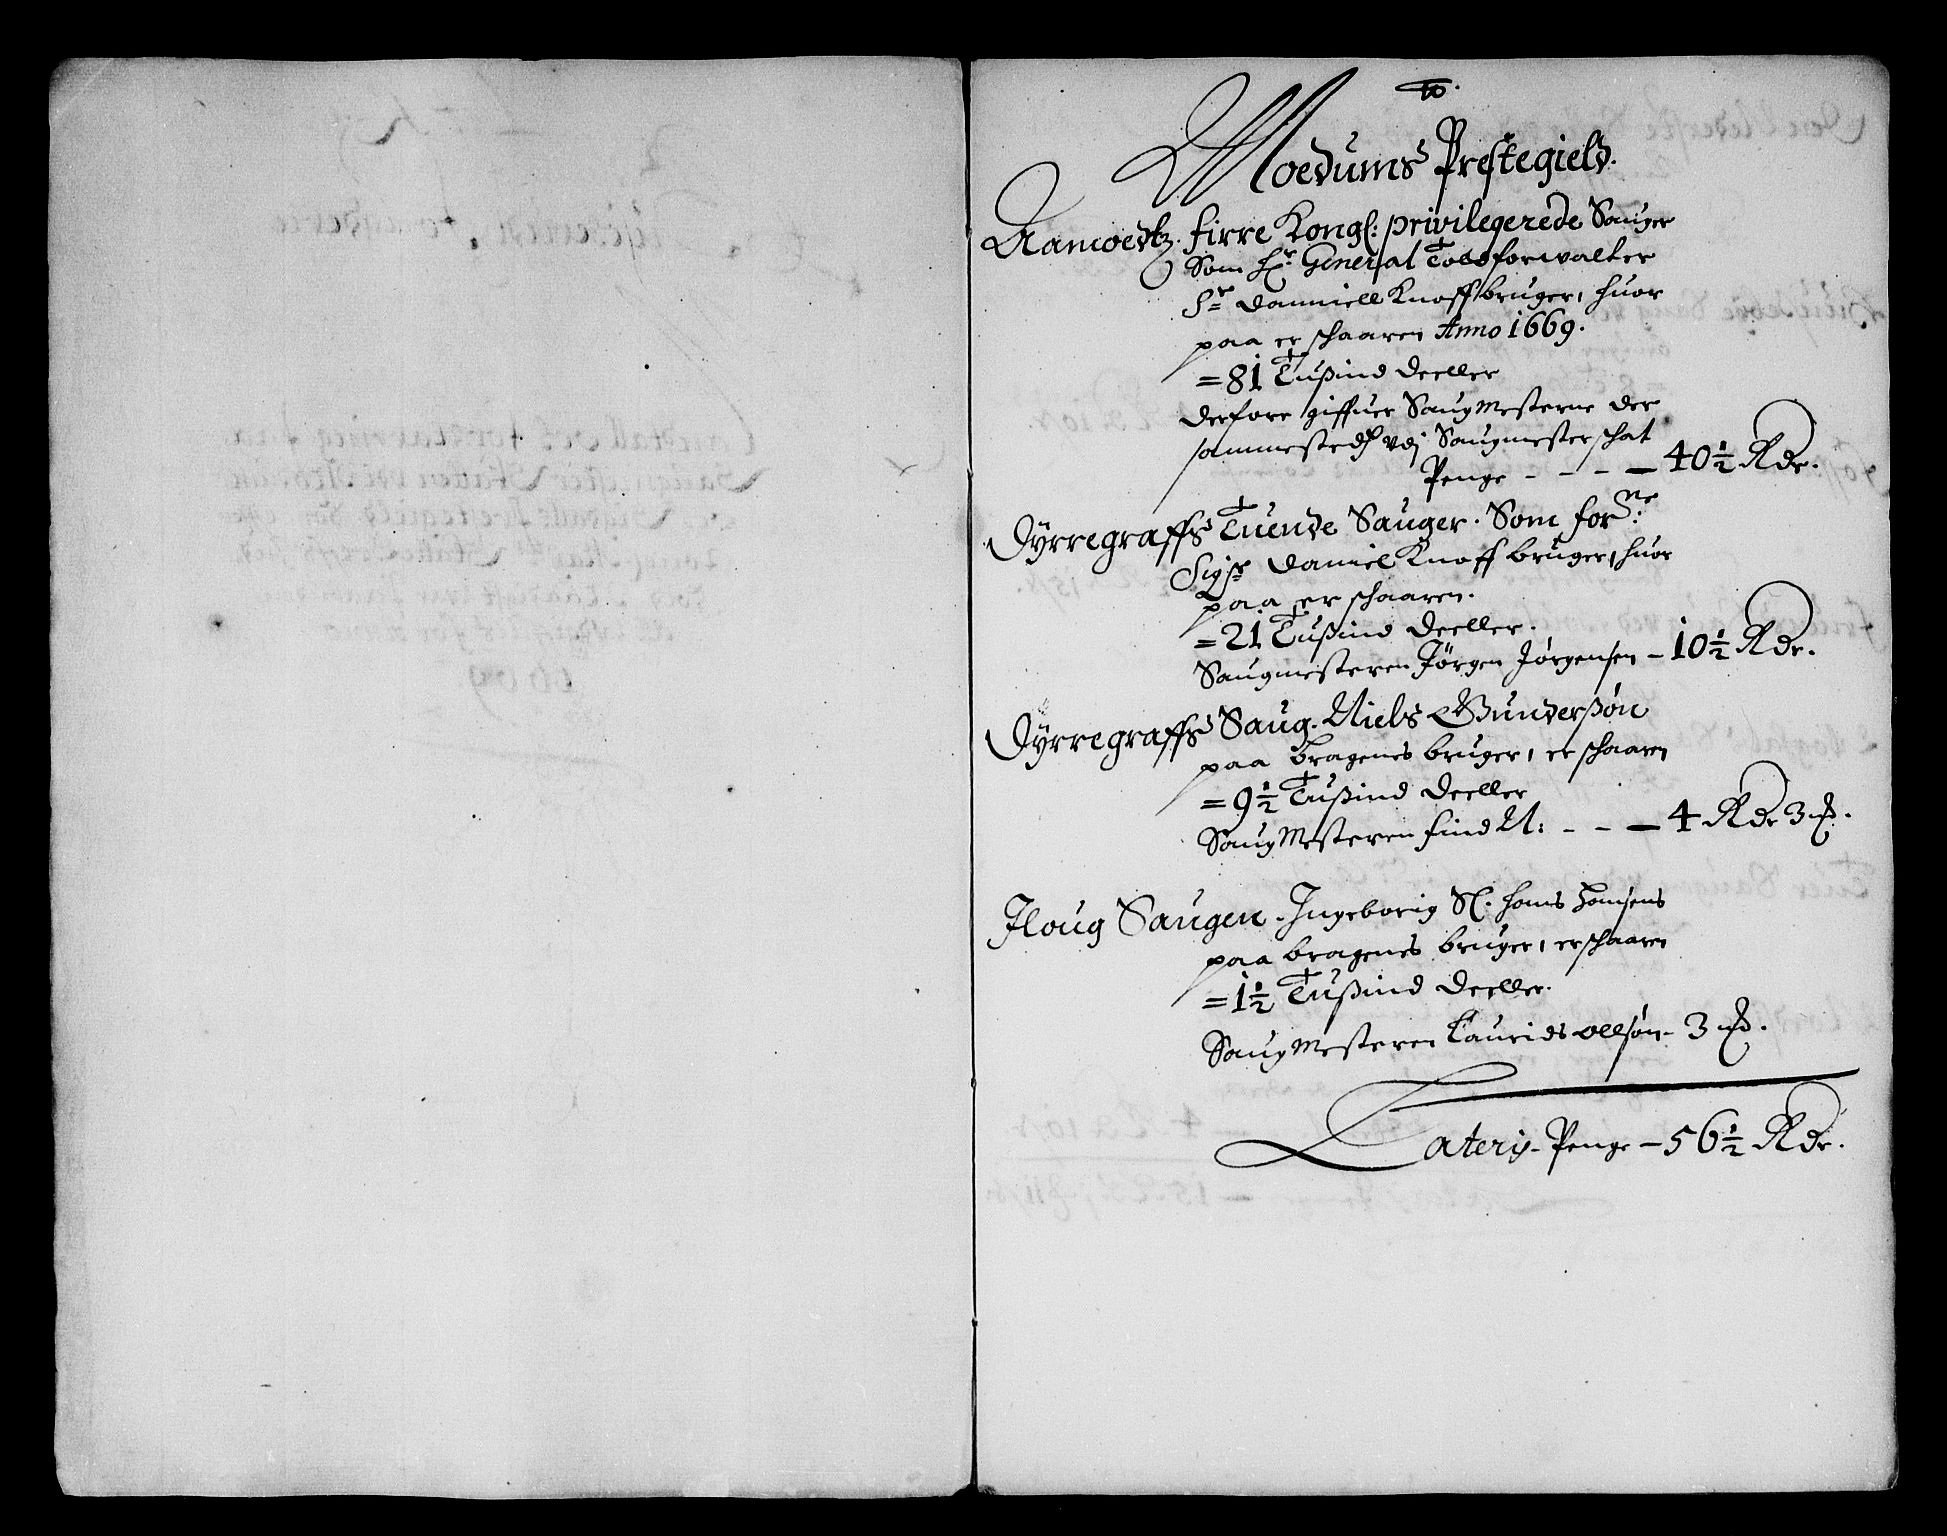 Moedums Prestegield.
Aamoedtz. firre Kongl: privilegerede Sauger
Som Hr General Toldforwalter
Sr Danniell Knoff bruger, huor
paa er schaaren Anno 1669.
=81 Tußind Deeller
derfore giffuer Saugmesterne der
sammestedz vdj Saugmester schat
Penge - - - 40½ Rdr.
Dÿrregraffs Tuende Sauger. Som forne:
Sigr Daniel Knoff bruger, huor
paa er schaaren.
=21 Tußind Deeller.
Saugmesteren Jörgen Jörgensen - 10½ Rdr.
Dÿrregraffs Saug. Niels Gunderßøn
paa bragenes bruger, er schaaren
=9½ Tußind Deeller
Saug Mesteren find N: - - - 4 Rdr 3 mk.
Floug Saugen. Ingeborig Sl. hans hansens
paa bragenes bruger, er schaaren
=1½ Tußind Deeller.
Saug Mesteren Laurids ollsøn - 3 mk.
Lateris - Penge - 56½ Rdr.